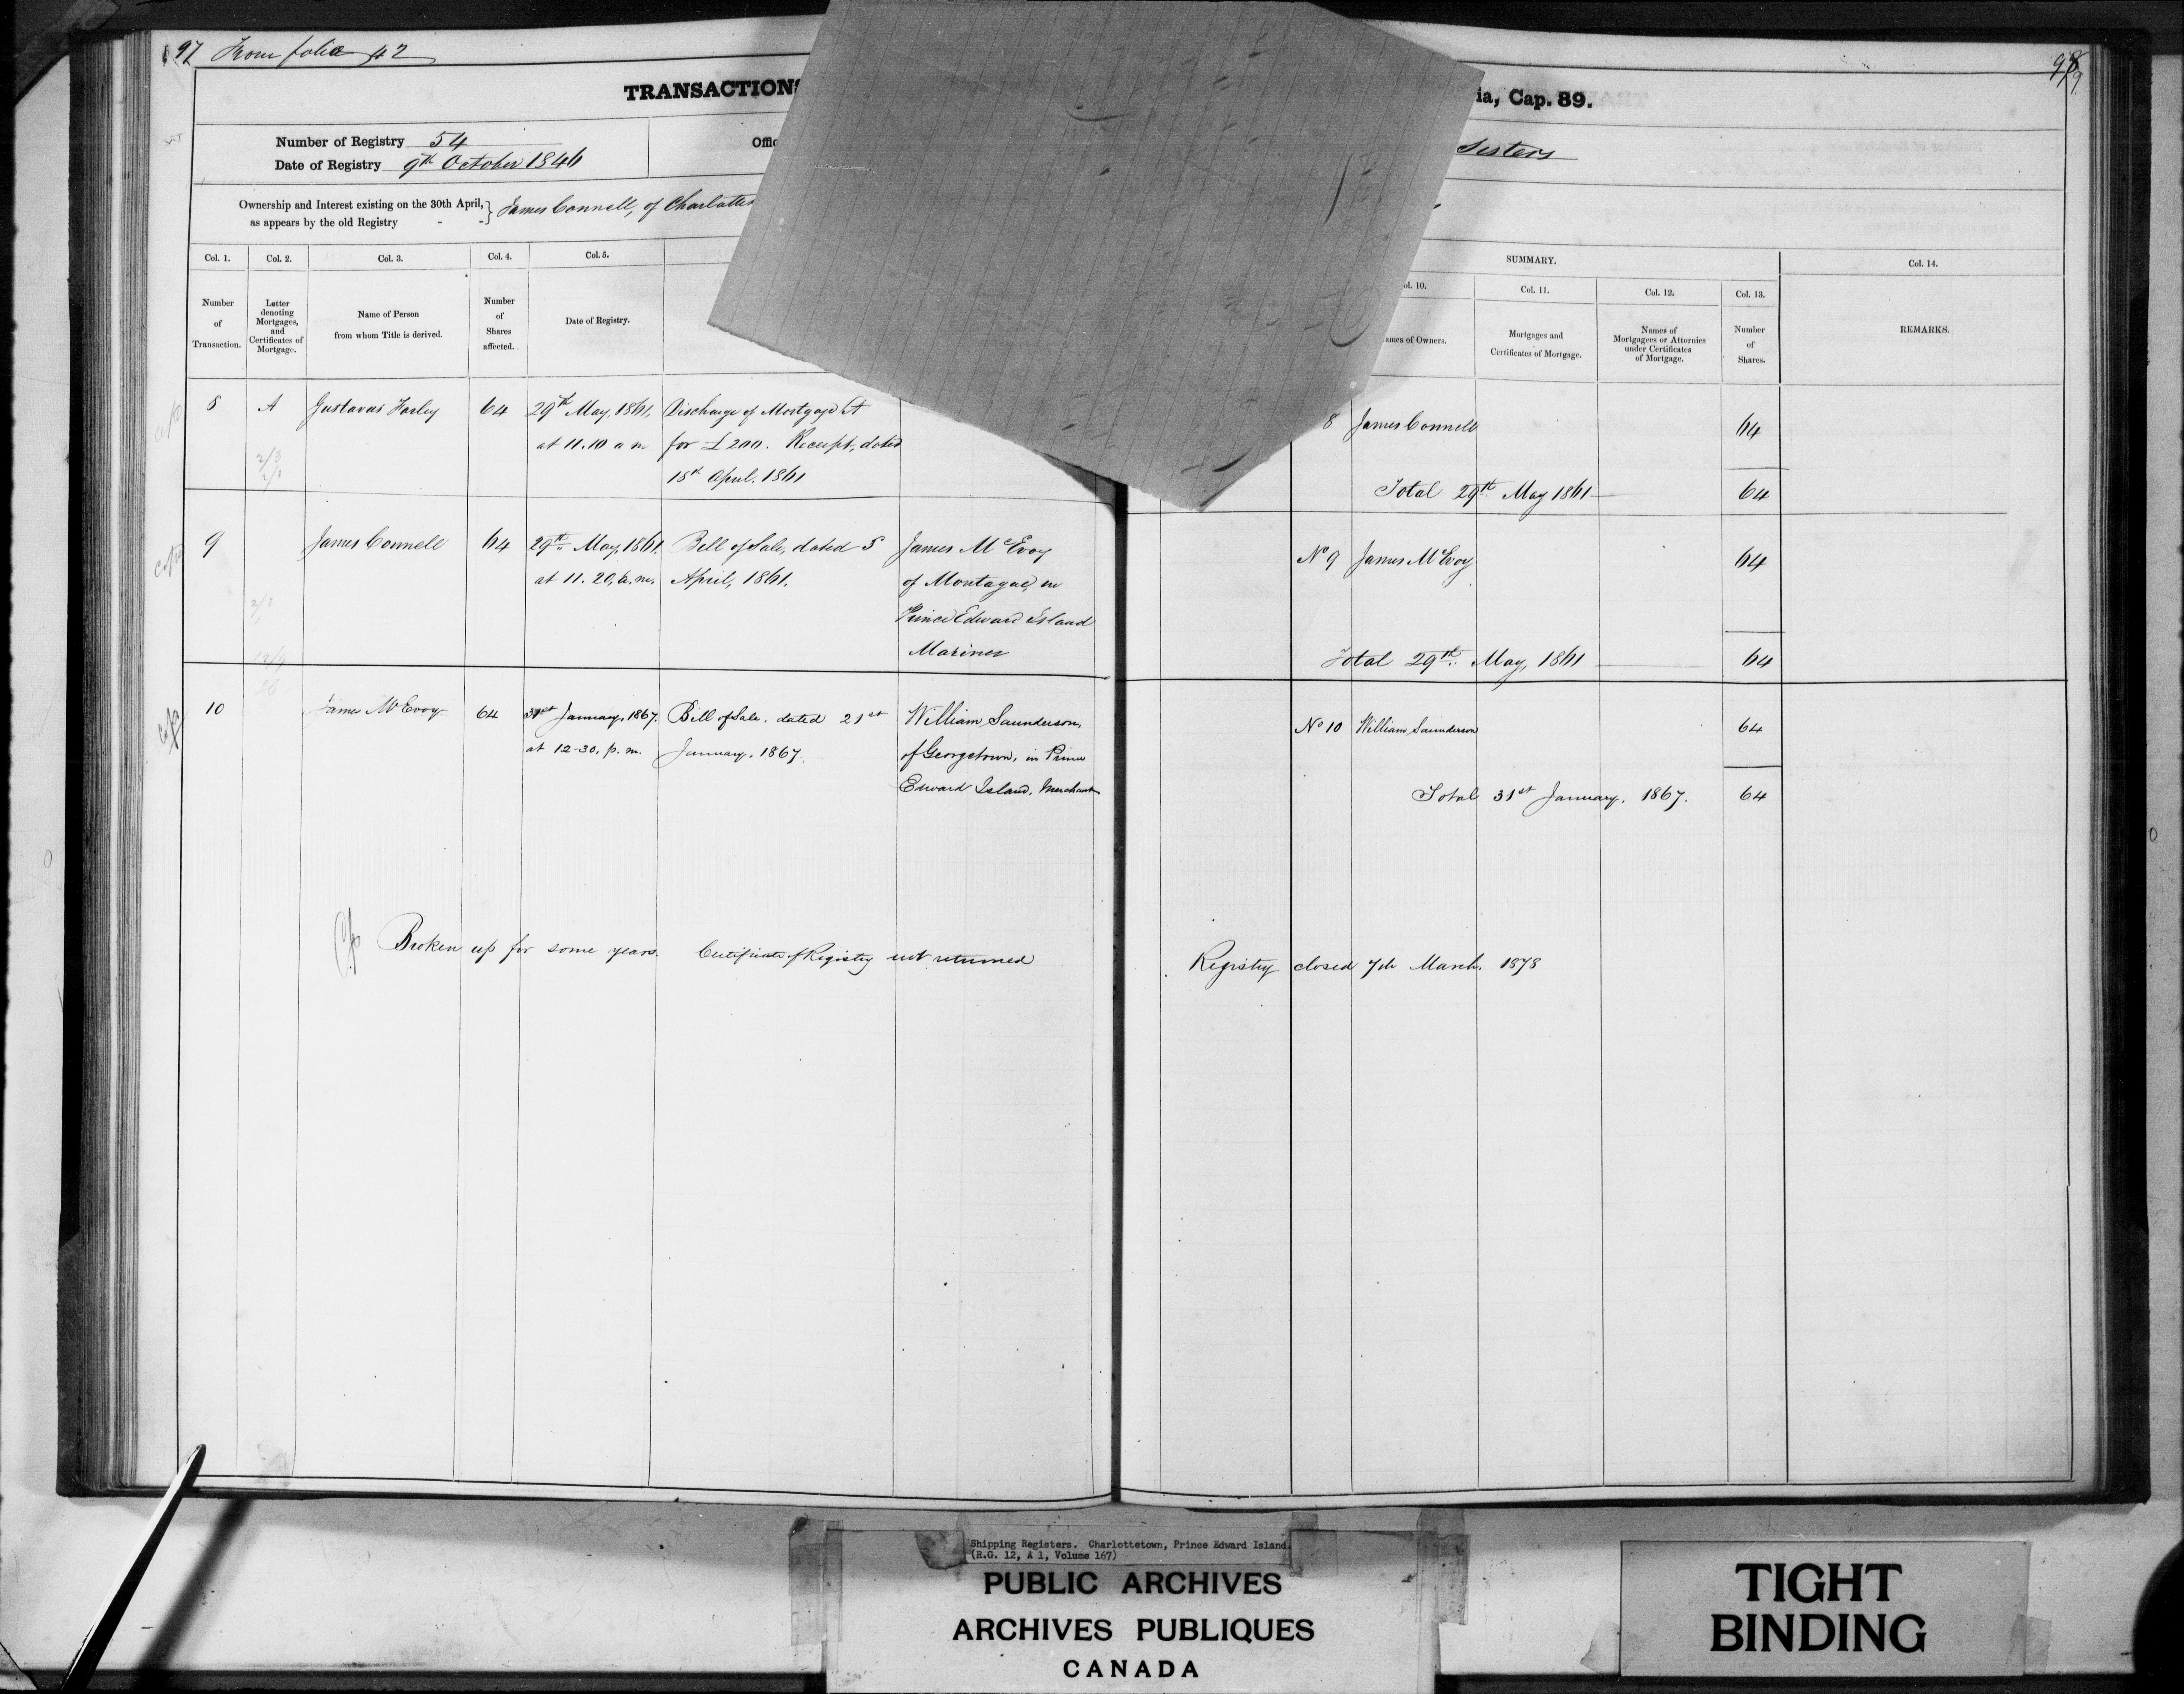 97 From folio 42
98
TRANSACTIONS
ia, Cap. 89.
Number of Registry 54
Date of Registry 9th October 1846
Sisters
Ownership and Interest existing on the 30th April,
as appears by the old Registry - - } James Connell, of
Col. 1. Col. 2. Col. 3. Col. 4. Col. 5.
Number of Transaction.
Letter denoting Mortgages, and Certificates of Mortgage.
Name of Person from whom Title is derived.
Number of Shares affected.
Date of Registry.
SUMMARY.
Col. 11. Col. 12. Col. 13. Col. 14.
Mortgages and Certificates of Mortgage.
Names of Mortgagees or Attornies under Certificates of Mortgage.
Number of Shares.
REMARKS.
8 A Gustavus 64 29th May, 1861, Discharge of Mortgage A
at 11.10 a m for £200. Receipt, dated
18th April. 1861
8 James Connell 64
Total 29th May 1861 64
9 James Connell 64 29th May, 1861, Bill of Sale, dated 8 James McEvoy
at 11.20, a.m. April, 1861. of Montague, in
Prince Edward Island
Mariner
No 9 James McEvoy 64
Total 29th May, 1861 64
10 James McEvoy 64 31st January, 1867. Bill of Sale. dated 21st William Saunderson,
at 12-30, p.m. January, 1867. of Georgetown, in Prince
Edward Island, Merchant
No 10 William Saunderson 64
Total 31st January, 1867. 64
Broken up for some years. Certificate of Registry not returned
Registry closed 7th March, 1878
Shipping Registers. Charlottetown, Prince Edward Island.
(R.G. 12, A 1, Volume 167)
PUBLIC ARCHIVES
ARCHIVES PUBLIQUES
CANADA
TIGHT
BINDING